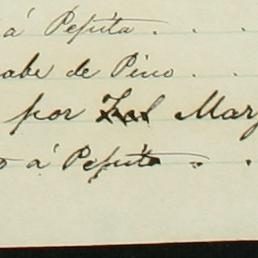 á Pepita . .
abe de Pino . . .
por Mary
á Pepita . .